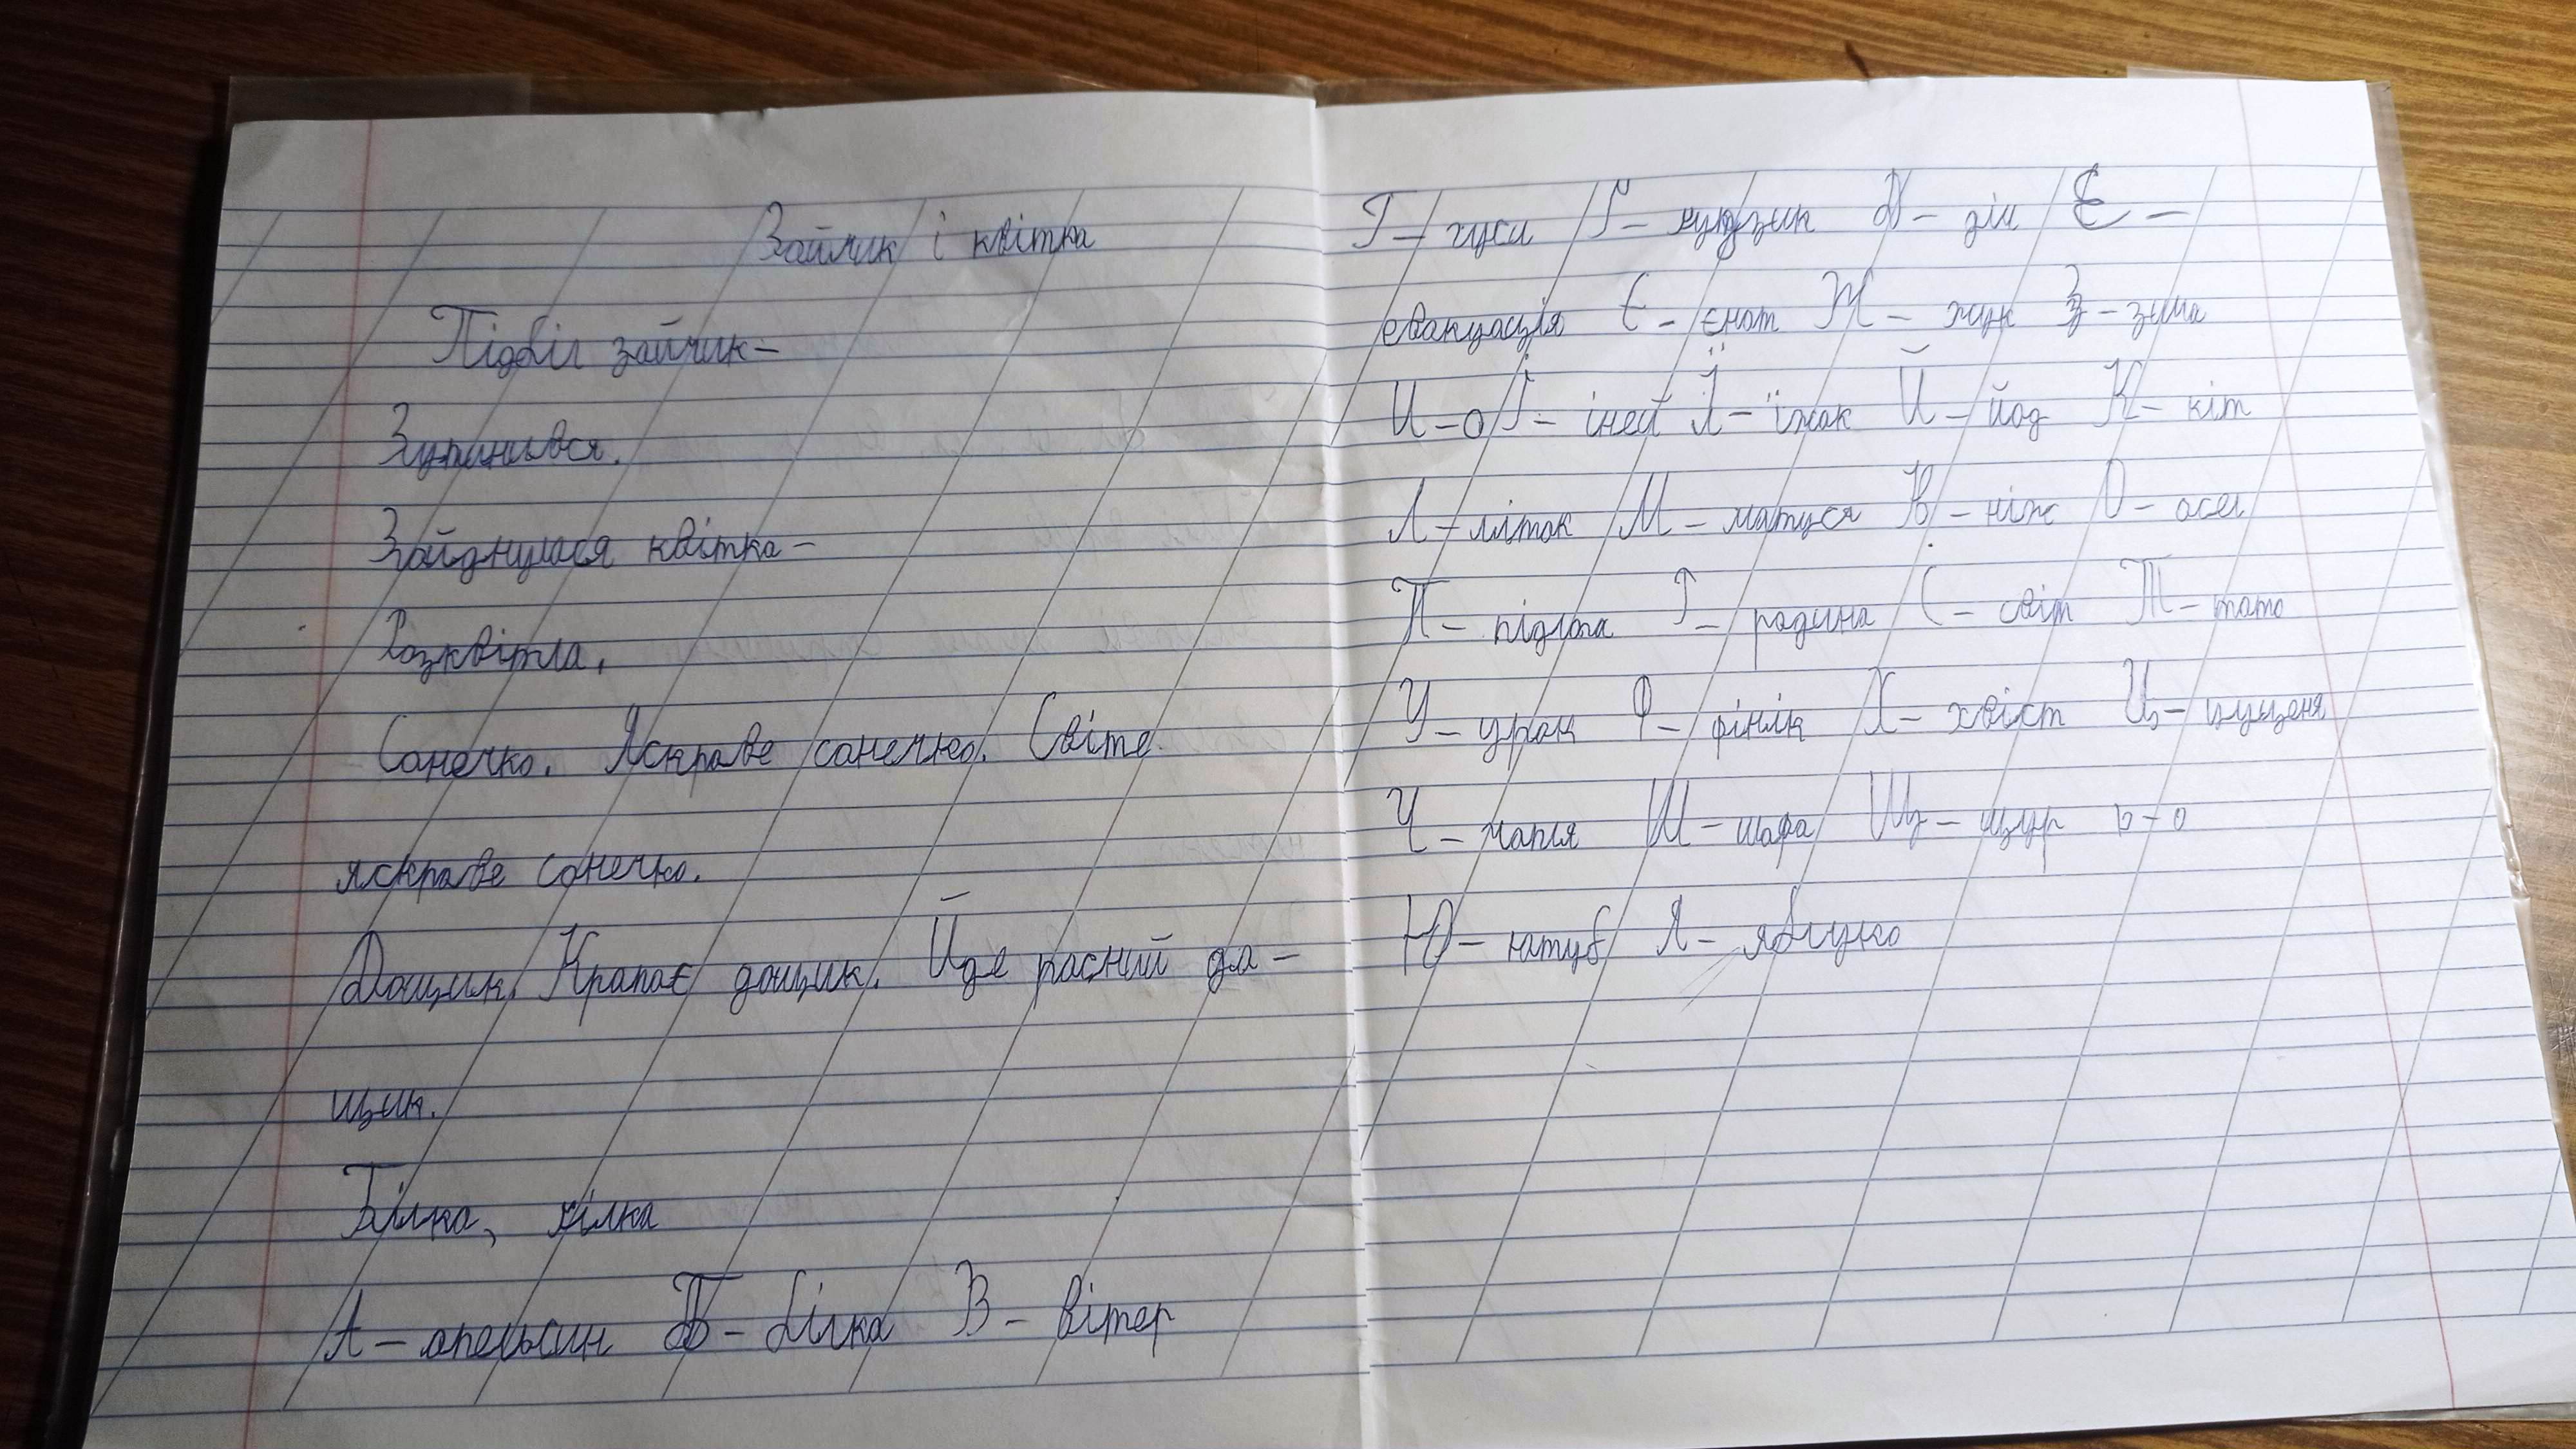 Зайчик і квітка
Підбіг зайчик–
Зупинився.
Зайднулася квітка–
Розквітла.
Сонечко. Яскраве сонечко. Світе
яскраве сонечко.
Дощик. Крапає дощик. Йде рясний до–
щик.
Білка, гілка
А – апельсин Б – білка В – вітер
Г – гуси Ґ – ґудзик Д – дім Е –
евакуація Є – єнот Ж – жук З – зима
И – о І – іней Ї – їжак Й – йод К – кіт
Л – літак М – матуся Н – ніж О – осел
П – підлога Р – родина С – світ Т – тато
У – урок Ф – фінік Х – хвіст Ц – цуценя
Ч – чапля Ш – шафа Щ – щур ь – о
Ю – ютуб Я – яблуко